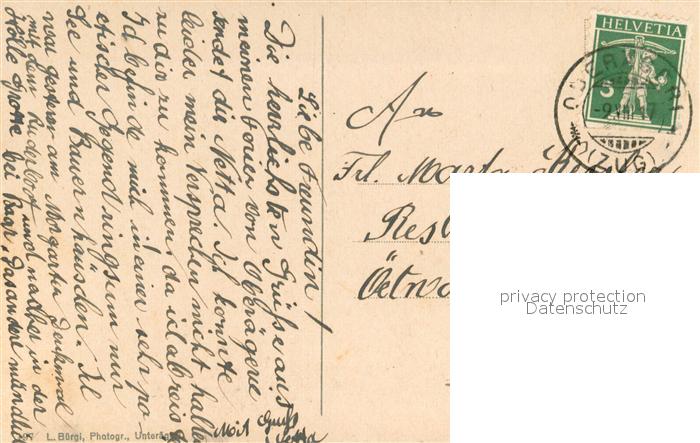 Liebe Freundin!
Die herrlichsten Grüsse aus
meinen Ferien von Oberägeri
sendet dir Netta. Ich konnte
leider mein Versprechen nicht halten
zu dir zu kommen, da ich abreis
Ich befinde mich in einer sehr po
etischer Gegend ringsum nur
See und Bauernhäuschen. Ich
war gestern am Morgarten Denkmal
mit dem Ruderboot und nachher in der
Hölle Grotte bei Baar. Das andere mündlich
Mit Gruss
Netta
L. Bürgi, Photogr., Unterä
An
Frl. Martha
Rest
Oetw
HELVETIA
5
OBERÄGERI
(ZUG)
privacy protection
Datenschutz